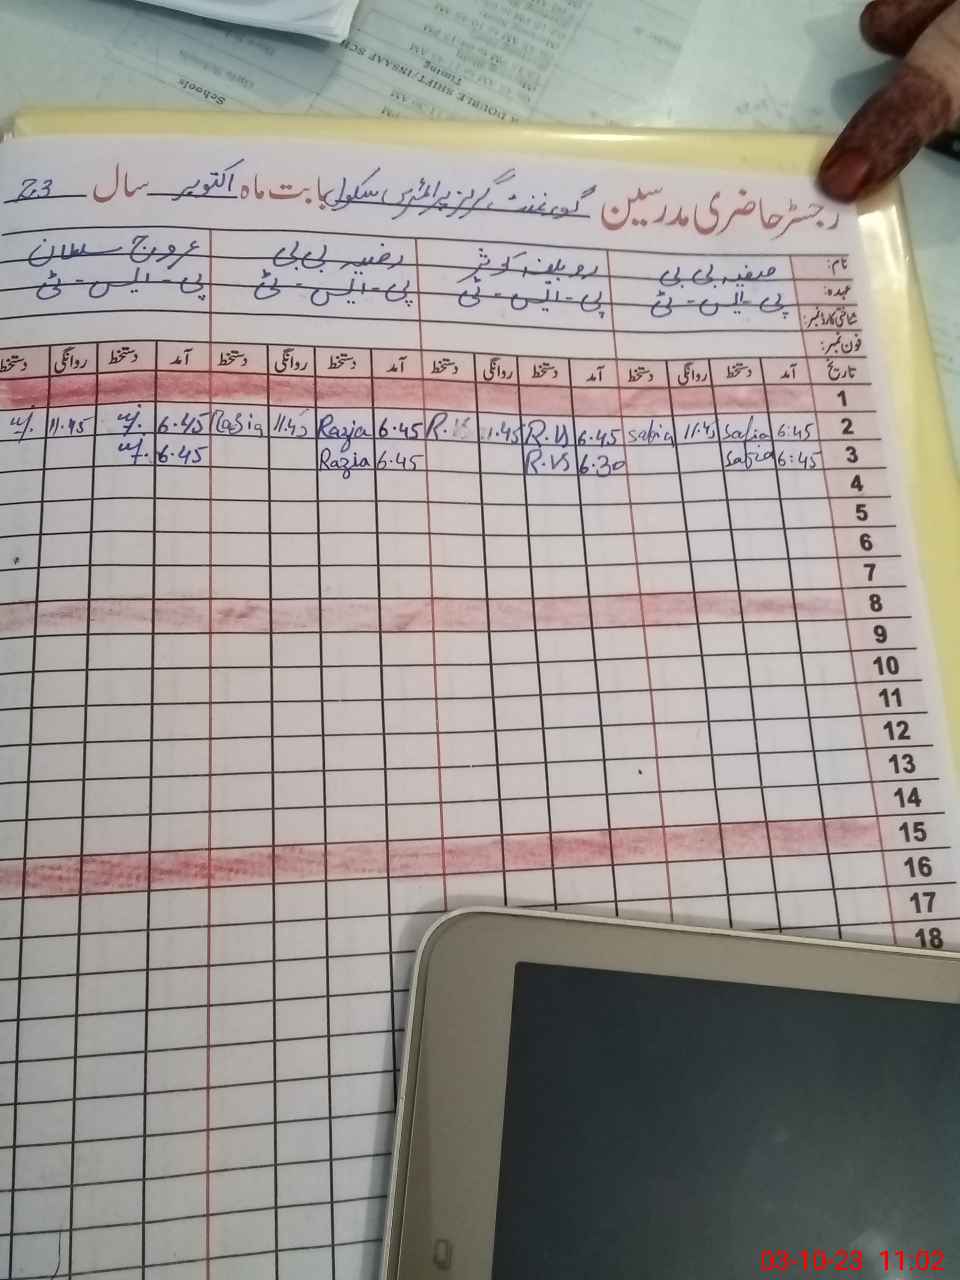 رجسٹر حاضری مدرسین گورنمنٹ گرلز پرائمری سکول بابت ماہ اکتوبر سال
نام: صفیہ بی بی روبینہ کوثر رضیہ بی بی عروج سلطان
عہدہ: پی-ایس-ٹی پی-ایس-ٹی پی-ایس-ٹی پی-ایس-ٹی
شناختی کارڈ نمبر:
فون نمبر:
تاریخ آمد دستخط روانگی دستخط آمد دستخط روانگی دستخط آمد دستخط روانگی دستخط آمد دستخط روانگی دستخط
1
2 6:45 Safia 11.45 Safia 6.45 R.K 1.45 R.K 6.45 Razia 11.45 Razia 6.45 11.45
3 6:45 Safia 6.30 R.K 6.45 Razia 6.45
4
5
6
7
8
9
10
11
12
13
14
15
16
17
18
Schools
Timing
DOUBLE SHIFT/INSAAF SCH
03-10-23 11:02